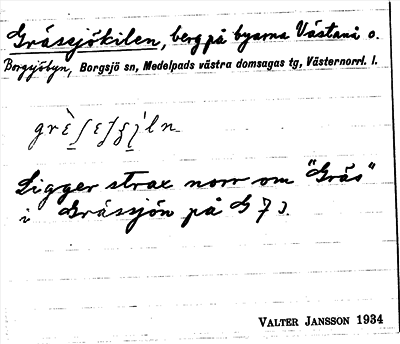 Grässjökilen, berg på byarna Västanå o.
Borgsjöbyn, Borgsjö sn, Medelpads västra domsagas tg, Västernorrl. l.
Ligger strax norr om "Gräs"
i Grässjön på G 73.
VALTER JANSSON 1934